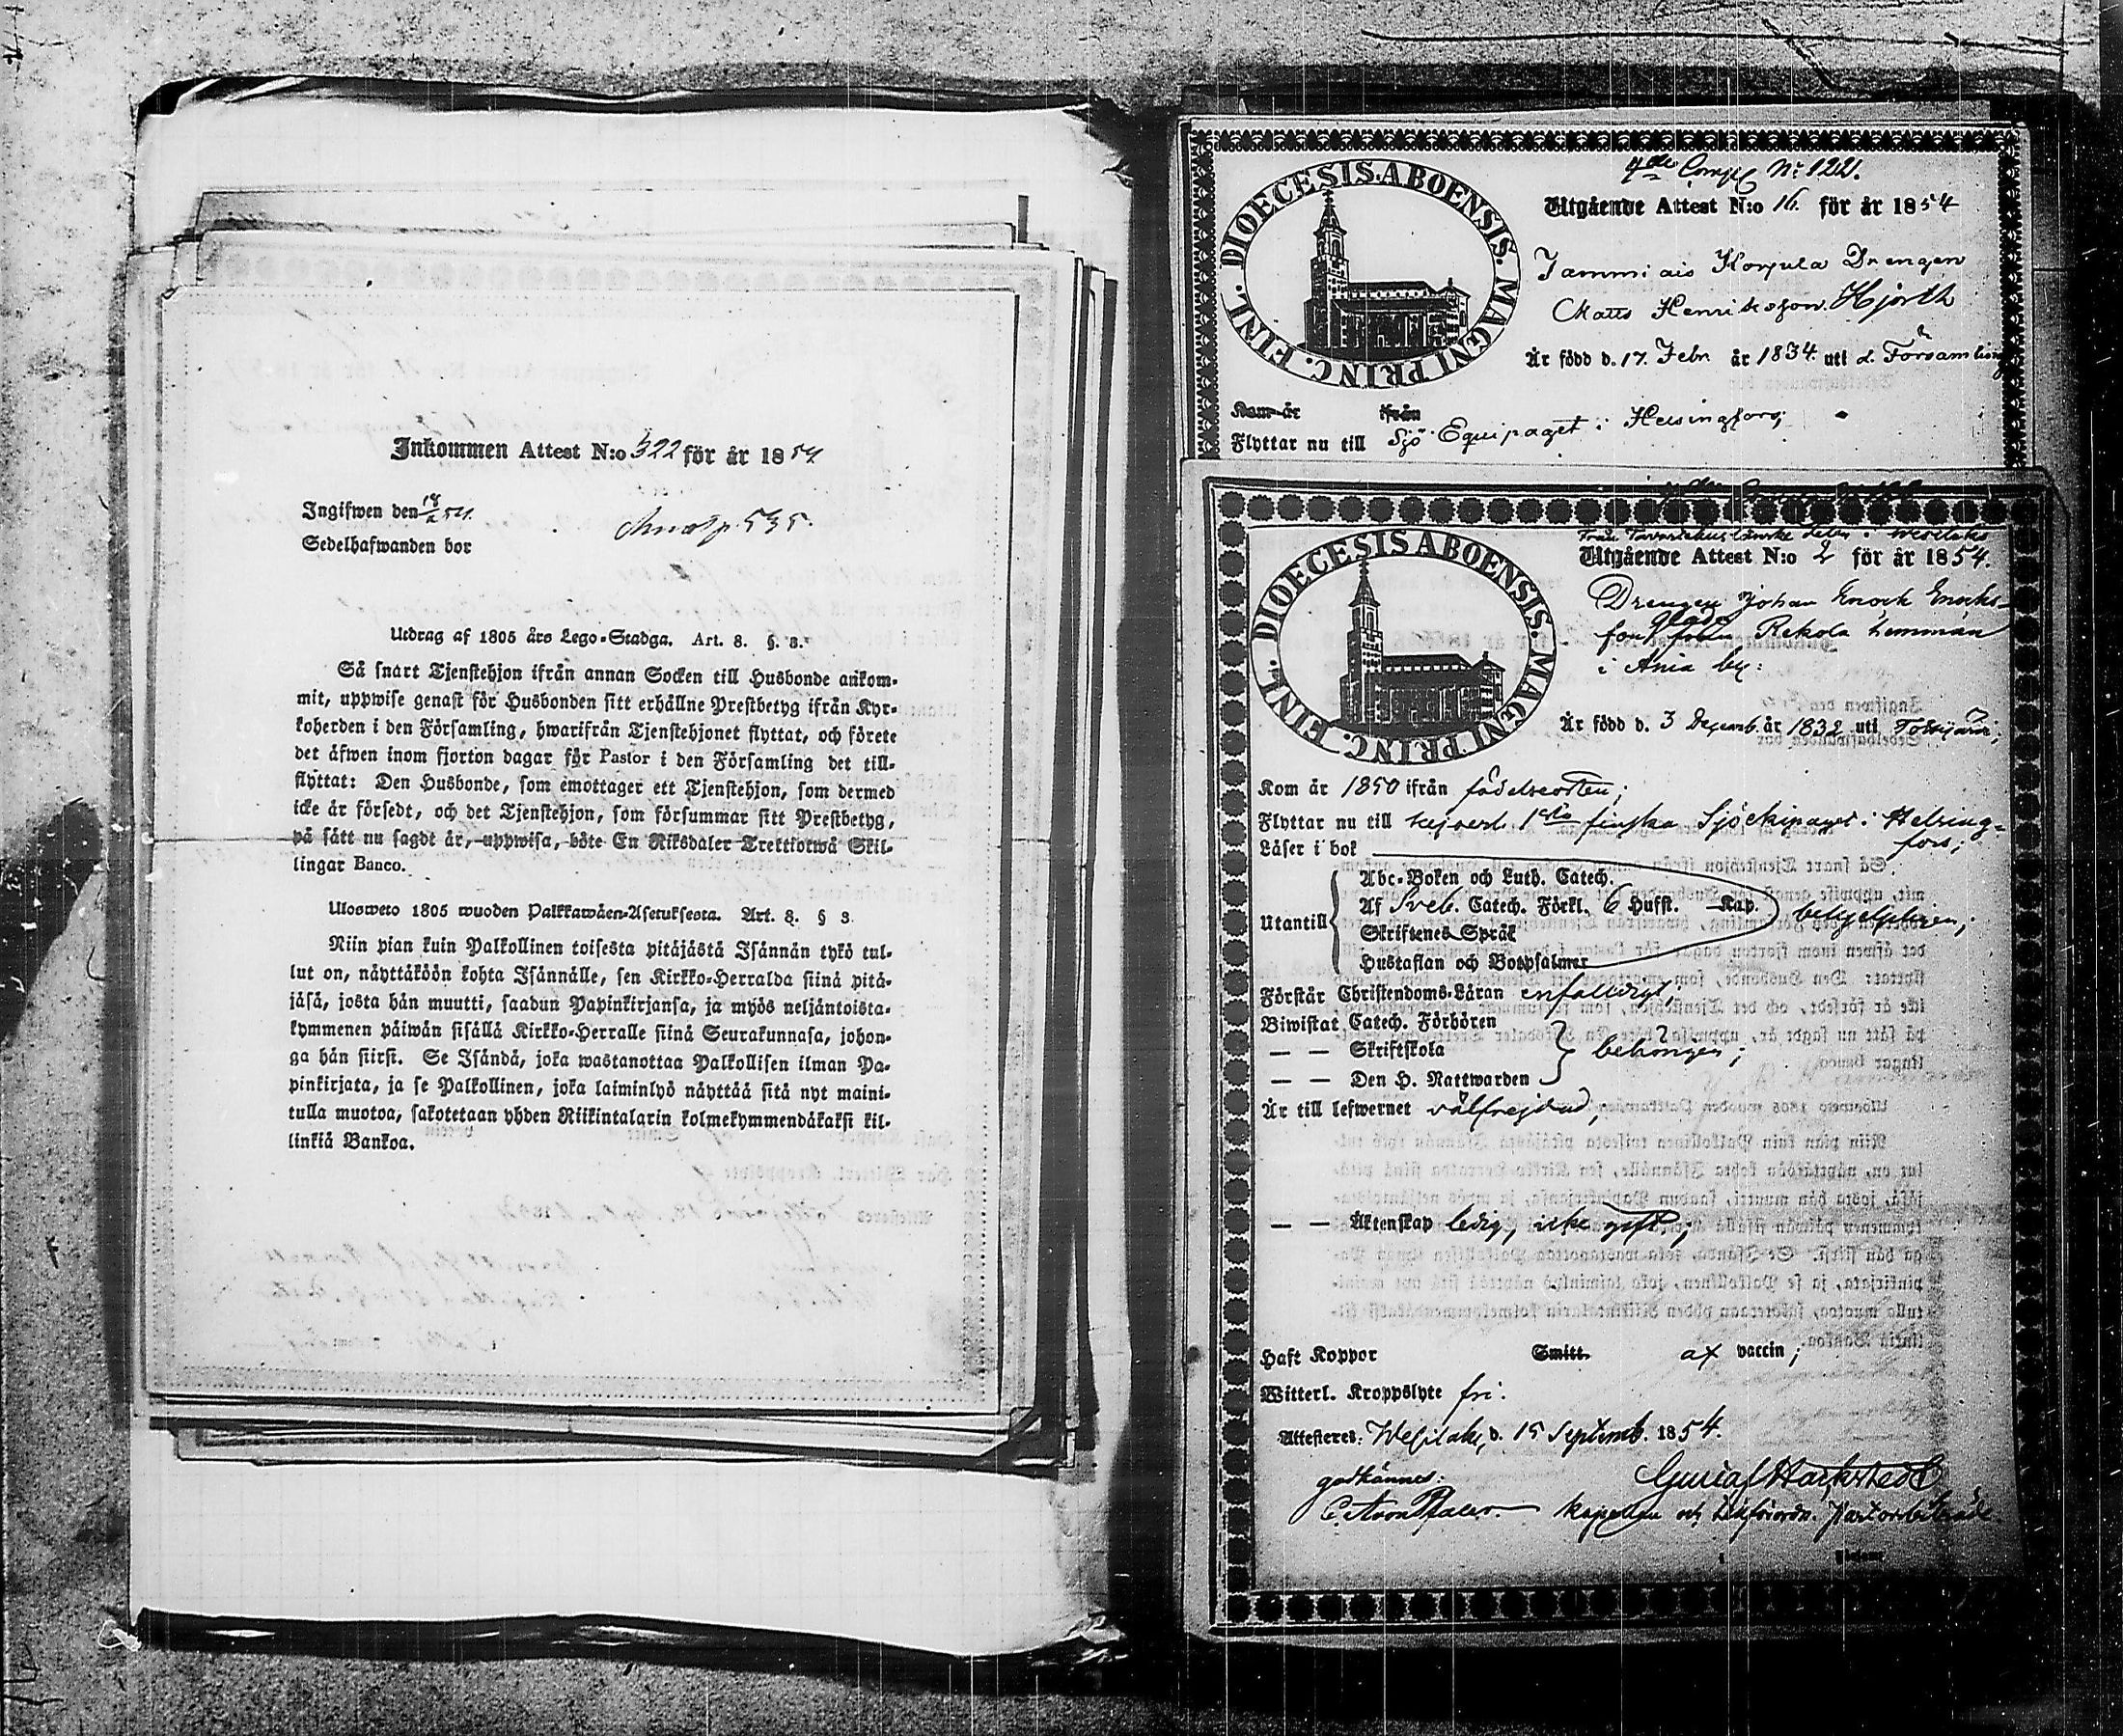 Inkommen Attest N:o 322 för år 1854
Ingifwen den 18/ 54.
Sedelhafwanden bor p. 535.
Utdrag af 1805 års Lego-Stadga. Art. 8. §. 8.
Så snart Tjenstehjon ifrån annan Socken till Husbonde ankom-
mit, uppwise genast för Husbonden sitt erhållne Prestbetyg ifrån Kyr-
koherden i den Församling, hwarifrån Tjenstehjonet flyttat, och förete
det äfwen inom fjorton dagar för Pastor i den Församling det till-
flyttat: Den Husbonde, som emottager ett Tjenstehjon, som dermed
icke är försedt, och det Tjenstehjon, som försummar sitt Prestbetyg,
på sätt nu sagdt är, uppwisa, böte En Riksdaler Trettiotwå Skil-
lingar Banco.
Ulosweto 1805 wuoden Palkkawäen-Asetuksesta. Art. 8. § 8
Niin pian kuin Palkollinen toisesta pitäjästä Isännän tykö tul-
lut on, näyttäköön kohta Isännälle, sen Kirkko-Herralda siinä pitä-
jäsä, josta hän muutti, saadun Papinkirjansa, ja myös neljäntoista-
kymmenen päiwän sisällä Kirkko-Herralle siinä Seurakunnasa, johon-
ga hän siirsi. Se Isändä, joka wastanottaa Palkollisen ilman Pa-
pinkirjata, ja se Palkollinen, joka laiminlyö näyttää sitä nyt maini-
tulla muotoa, sakotetaan yhden Riikintalarin kolmekymmendäkaksi kil-
linkiä Bankoa.
DIOECESIS ABOENSIS. MAGNI PRINC. FINL.
4de Comp N:o 122.
Utgående Attest N:o 16. för år 1854
Tammiais Korpula Drengen
Matts Henriksson Hjorth
Är född d. 17. Febr. år 1834 uti d. Församling
Kom år ifrån
Flyttar nu till Sjö Equipaget i Helsingfors;
DIOECESIS ABOENSIS. MAGNI PRINC. FINL.
Från Tavastehus länske delen i
Utgående Attest N:o 2 för år 1854.
Drengen Johan Enock Enocks-
son från Rekola hemman
i Ania by:
Är född d. 3 Decemb. år 1832 uti
Kom år 1850 ifrån födelseorten;
Flyttar nu till kejserl. 1sta finska Sjöekipaget i Helsing-
fors;
Läser i bok
Utantill
Abc-Boken och Luth. Catech.
Af Sveb. Catech. Förkl. 6 Hufst. Kap.
Skriftenes Språk
Hustaflan och Botpsalmer
Förstår Christendoms-Läran enfaldigt;
Biwistat Catech. Förhören
— — Skriftskola
— — Den H. Nattwarden
Är till lefwernet välfrejdad;
— — Äktenskap ledig, icke gift;
Haft Koppor Smitt. af vaccin;
Witterl. Kroppslyte fri.
Attesteres: Wesilaks, d. 15 Septemb. 1854.
godkännes:
Gustaf Hackstedt
Kapellan och